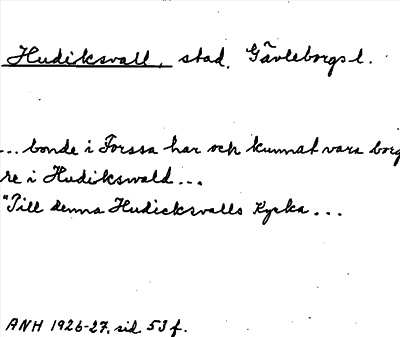 Hudiksvall, stad, Gävleborgs l.
... bonde i Forssa har och kunnat vara borg
re i Hudikswald...
"Till denna Hudicksvalls Kyrka...
ANH 1926-27, sid 53 f.